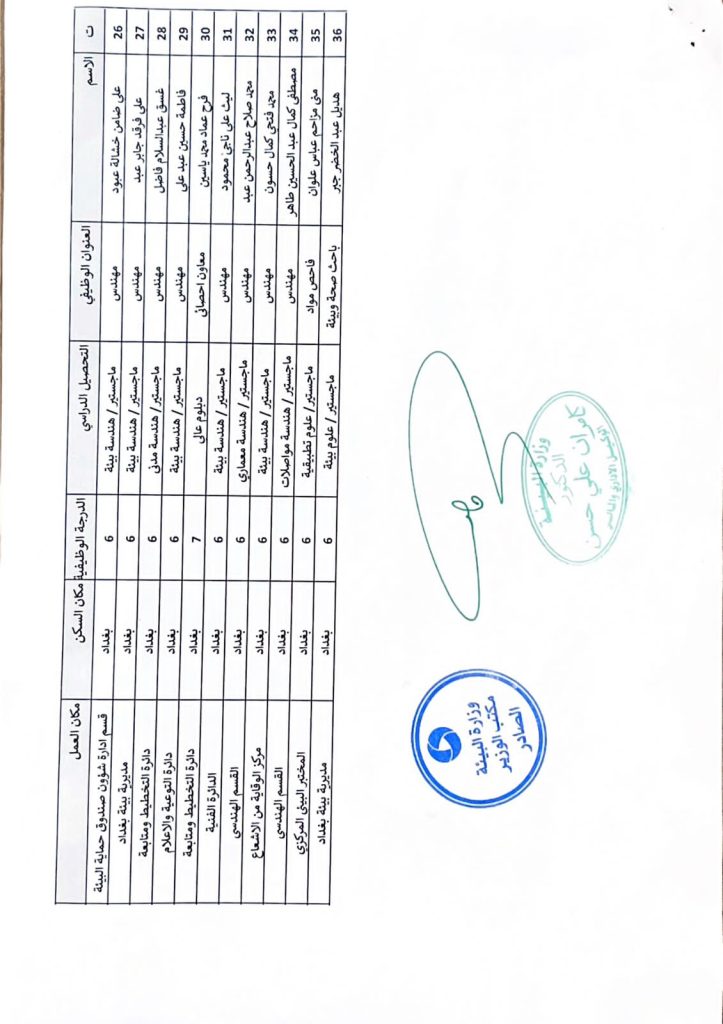 ت الاسم العنوان الوظيفي التحصيل الدراسي الدرجة الوظيفية مكان السكن مكان العمل
26 علي ضامن خشالة عبود مهندس ماجستير / هندسة بيئة 6 بغداد قسم ادارة شؤون صندوق حماية البيئة
27 علي فرقد جابر عبد مهندس ماجستير / هندسة بيئة 6 بغداد مديرية بيئة بغداد
28 غسق عبدالسلام فاضل مهندس ماجستير / هندسة مدني 6 بغداد دائرة التخطيط ومتابعة
29 فاطمة حسين عبد علي مهندس ماجستير / هندسة بيئة 6 بغداد دائرة التوعية والاعلام
30 فرح عماد محمد ياسين معاون احصائي دبلوم عالي 7 بغداد دائرة التخطيط ومتابعة
31 ليث علي ناجي محمود مهندس ماجستير / هندسة بيئة 6 بغداد الدائرة الفنية
32 محمد صلاح عبدالرحمن عبد مهندس ماجستير / هندسة معماري 6 بغداد القسم الهندسي
33 محمد فتحي كمال حسون مهندس ماجستير / هندسة بيئة 6 بغداد مركز الوقاية من الاشعاع
34 مصطفى كمال عبد الحسين طاهر مهندس ماجستير / هندسة مواصلات 6 بغداد القسم الهندسي
35 منى مزاحم عباس علوان فاحص مواد ماجستير / علوم تطبيقية 6 بغداد المختبر البيئي المركزي
36 هديل عبد الخضر جبر باحث صحة وبيئة ماجستير / علوم بيئة 6 بغداد مديرية بيئة بغداد
وزارة البيئة
الدكتور
كامران علي حسن
وزارة البيئة
مكتب الوزير
الصادر